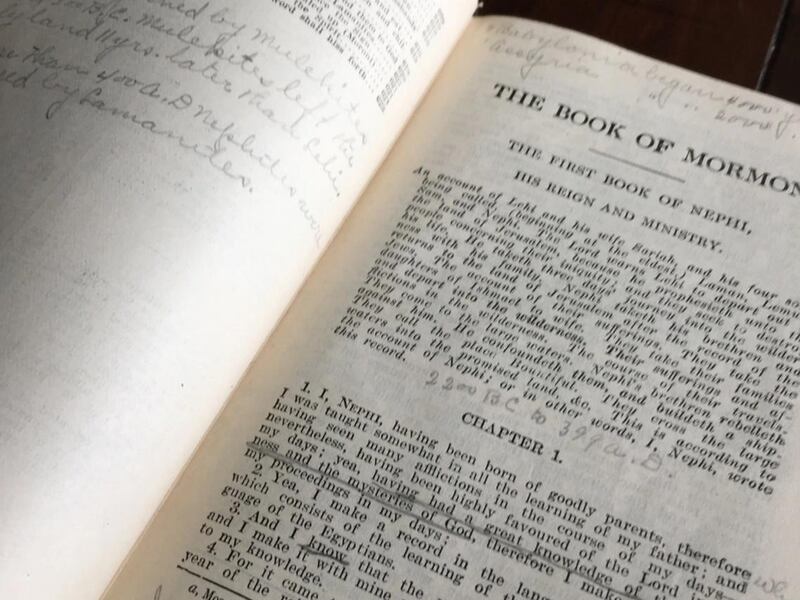 word shall hiss forth
by Mulekites
left the
land 11 yrs. later than Lehi.
than 400 A. D Nephites were
by Lamanites.
Babylonia began 4000
Assyria " " 2000
THE BOOK OF MORMON
THE FIRST BOOK OF NEPHI,
HIS REIGN AND MINISTRY.
An account of Lehi and his wife Sariah, and his four so
being called, (beginning at the eldest,) Laman, Lemu
Sam, and Nephi. The Lord warns Lehi to depart out
the land of Jerusalem, because he prophesieth unto th
people concerning their iniquity; and they seek to destro
his life. He taketh three days' journey into the wilder
ness with his family. Nephi taketh his brethren and
returns to the land of Jerusalem after the record of the
Jews. The account of their sufferings. They take the
daughters of Ishmael to wife. They take their families
and depart into the wilderness. Their sufferings and af-
flictions in the wilderness. The course of their travels.
They come to the large waters. Nephi's brethren rebelleth
against him. He confoundeth them, and buildeth a ship.
They call the place Bountiful. They cross the large
waters into the promised land, &c. This is according to
the account of Nephi; or in other words, I, Nephi, wrote
this record.
2200 BC to 399 A. D.
CHAPTER 1.
1. I, NEPHI, having been born of goodly parents, therefore
I was taught somewhat in all the learning of my father; and
having seen many afflictions in the course of my days—
nevertheless, having been highly favoured of the Lord in
my days; yea, having had a great knowledge of the
ness and the mysteries of God, therefore I make
my proceedings in my days;
2. Yea, I make a record in the lang
which consists of the learning of the
guage of the Egyptians.
3. And I know that the
and I make it with mine
to my knowledge.
4. For it came
year of the
a, Mo